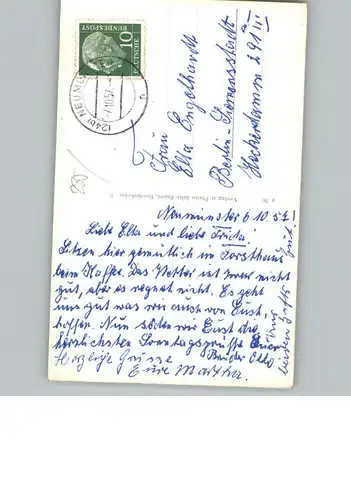 10
DEUTSCHE
BUNDESPOST
(24b) NEUMÜ
-7.10.57.-
Frau
Elta Engelhardt
Berlin-Siemensstadt
Heckerdamm 291 III
Neumünster 6.10.57!
Liebe Elta und liebe Frieda!
Sitzen hier gemütlich im Forsthaus
beim Kaffe. Das Wetter ist zwar nicht
gut, aber es regnet nicht. Es geht
uns gut was wir auch von Euch
hoffen. Nun senden wir Euch die
herzlichsten Sonntagsgrüsse Euer
Bruder Otto
Herzliche Grüsse
Eure Martha.